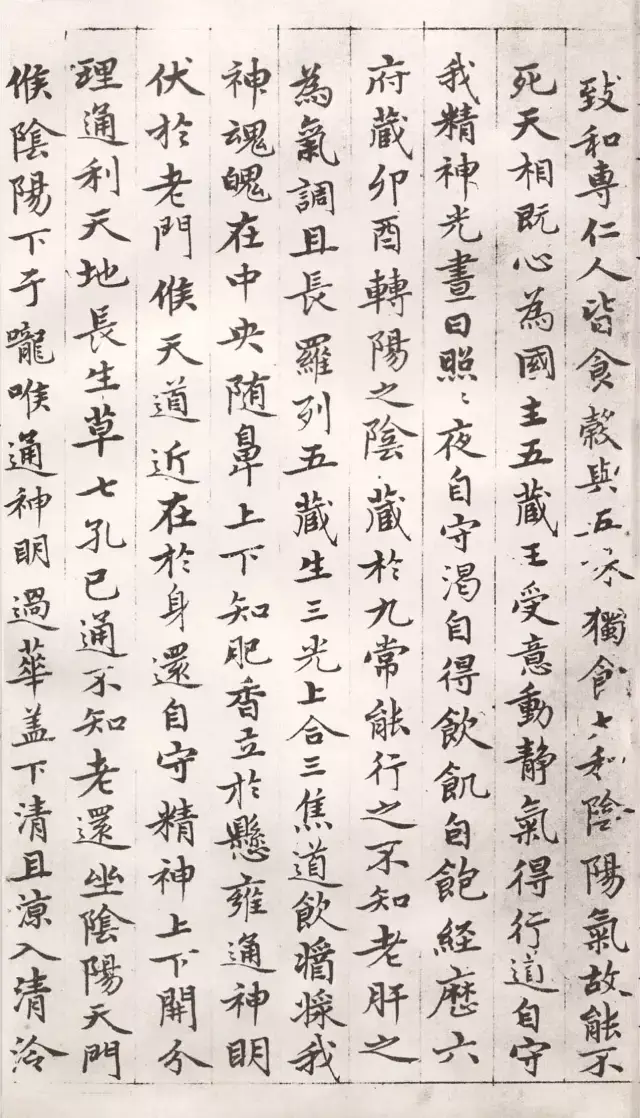 致和専仁人皆食穀與五味獨食大和陰陽氣故能不
死天相既心為國主五藏王受意動靜氣得行道自守
我精神光晝日照〻夜自守渴自得飲飢自飽経歷六
府藏卯酉轉陽之陰藏於九常能行之不知老肝之
為氣調且長羅列五藏生三光上合三焦道飲漿我
神魂魄在中央随鼻上下知肥香立於懸雍通神明
伏於老門候天道近在於身還自守精神上下開分
理通利天地長生草七孔已通不知老還坐陰陽天門
候陰陽下于嚨喉通神明過華盖下清且涼入清泠